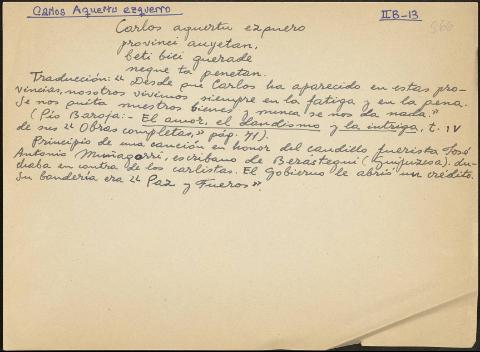 Carlos Aquertu ezquerro
II B-13
966
Carlos aquertu ezquero
provinci auyetan,
beti bici guerade
neque ta penetan.
Traducción: "Desde que Carlos ha aparecido en estas pro-
vincias, nosotros vivimos siempre en la fatiga y en la pena.
Se nos quita nuestros bienes y nunca se nos da nada."
(Pío Baroja:- El amor, el dandismo y la intriga, t. IV
de sus "Obras completas," pág. 71).
Principio de una canción en honor del caudillo fuerista José
Antonio Muñagorri, escribano de Berástegui (Guipúzcoa). Lu-
chaba en contra de los carlistas. El Gobierno le abrió un crédito.
Su bandería era "Paz y Fueros".